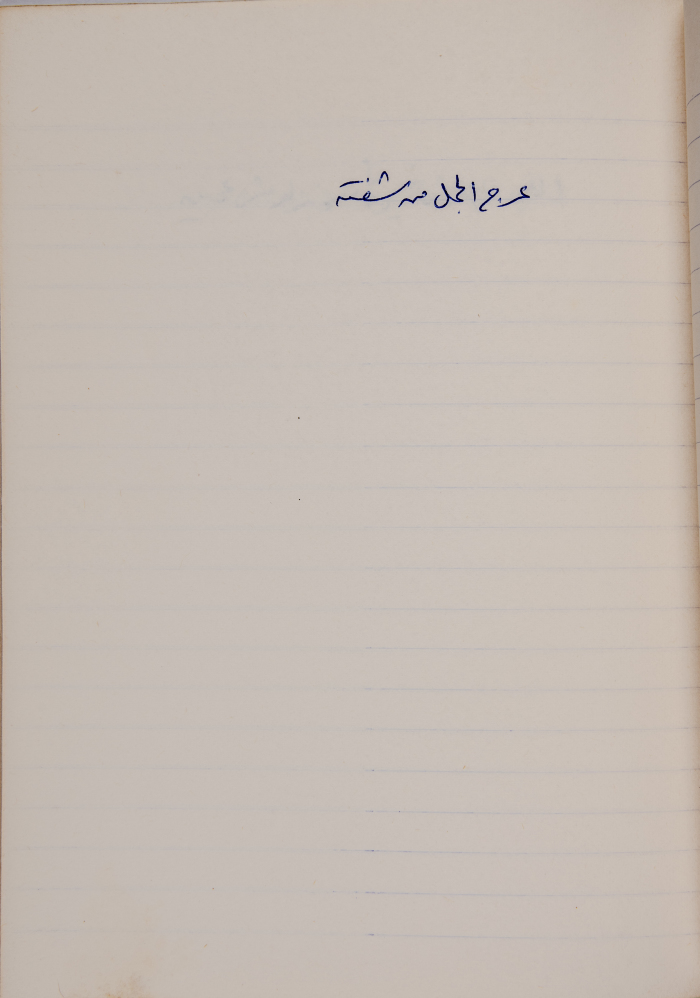 عرج الجمل من شفته